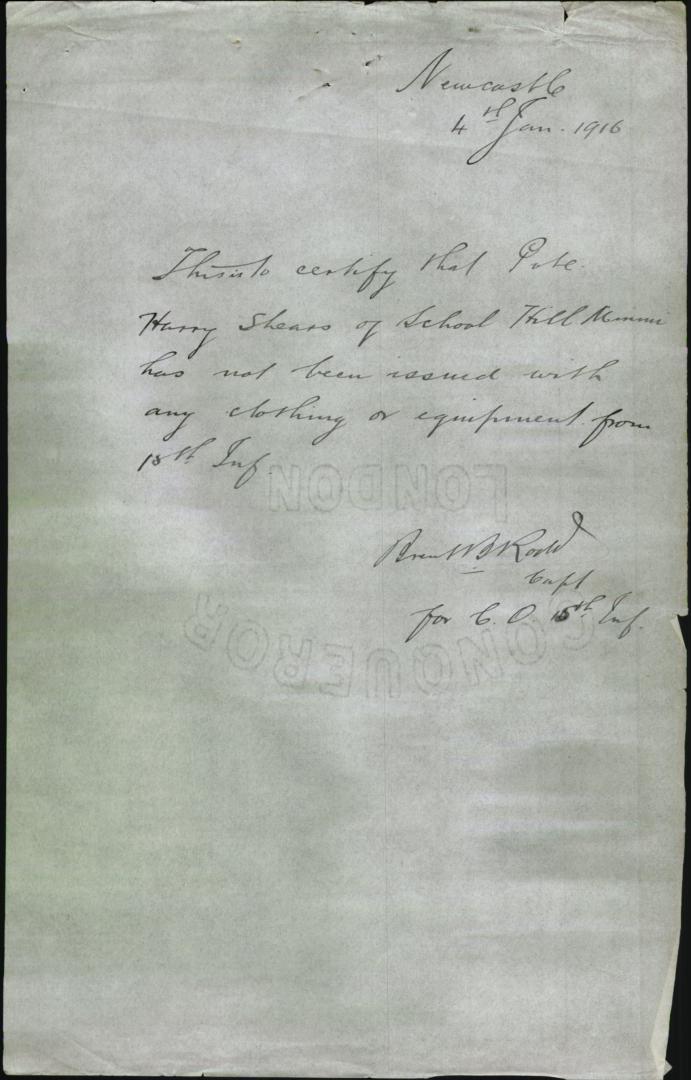 Newcastle
4th Jan. 1916
This is to certify that Pvte.
Harry Shears of School Hill Minmi
has not been issued with
any clothing or equipment from
15th Inf
LONDON
Brent B Rodd
Capt
for C. O. 15th Inf.
CONQUEROR